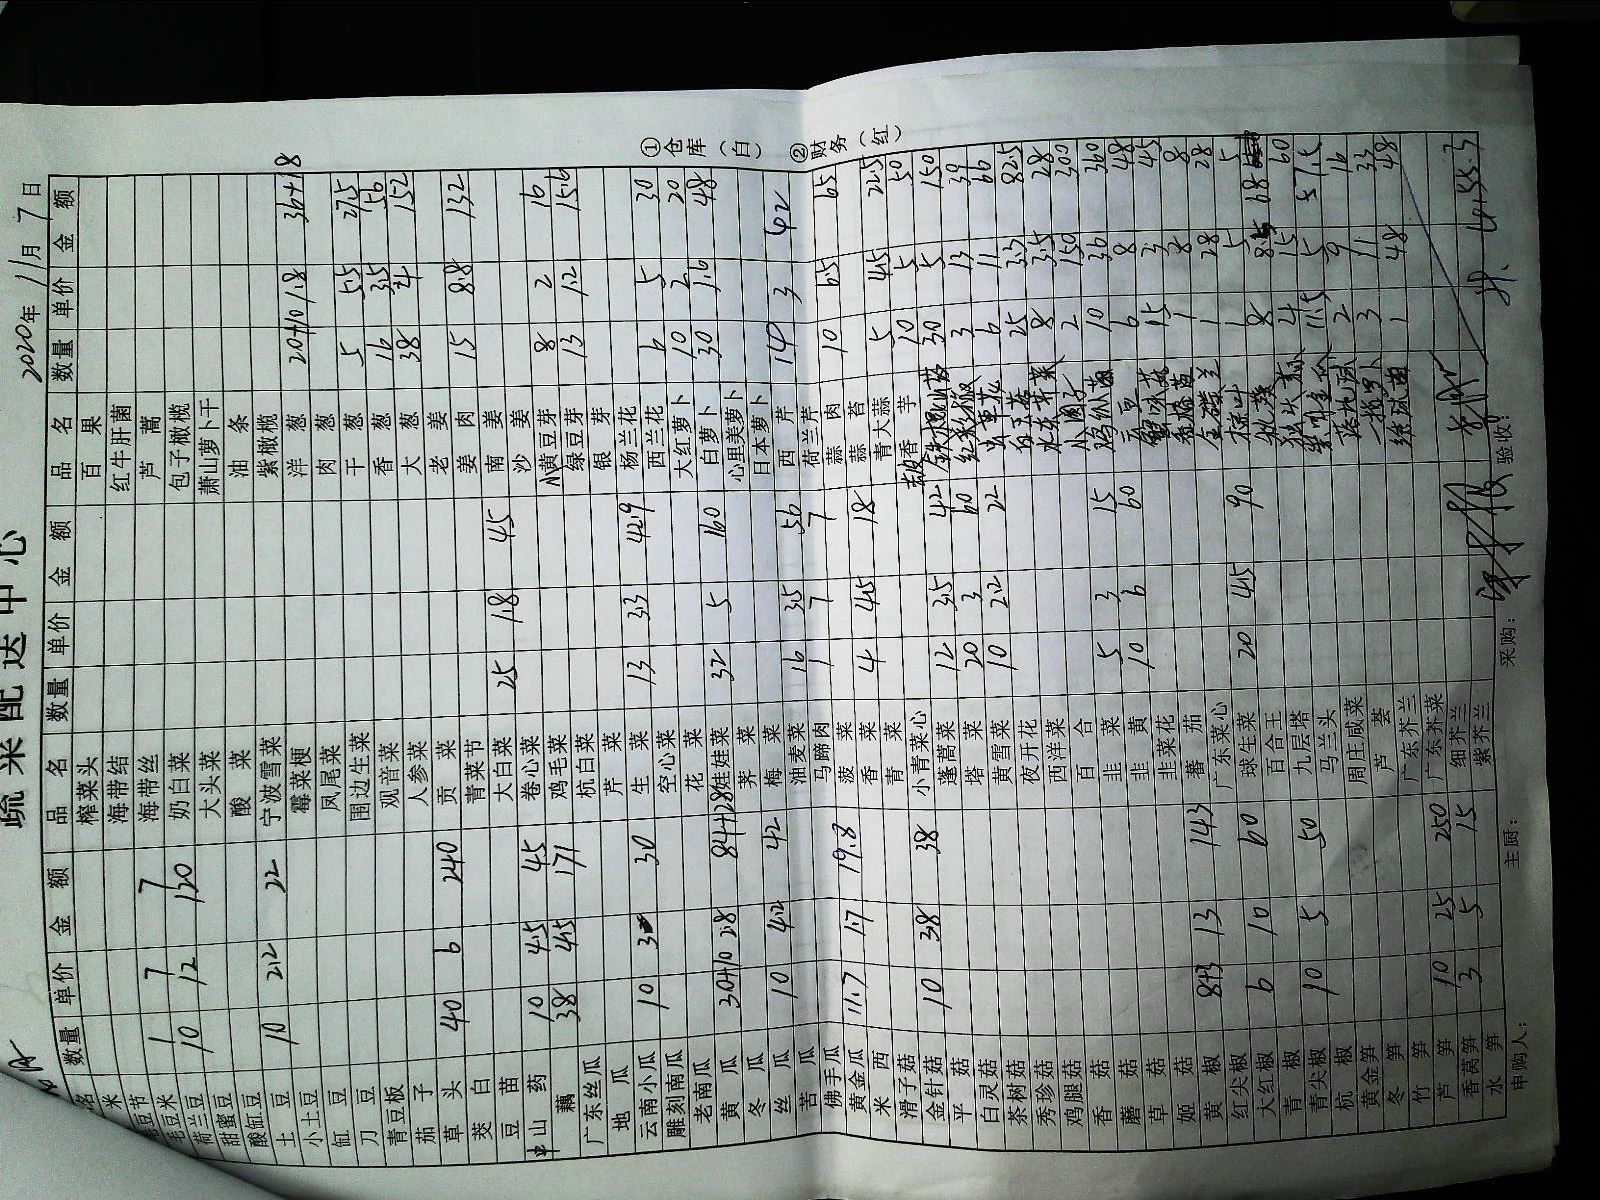 疏菜配送中心
2020年11月7日
品名 数量 单价 金额
毛豆米 1 7 7
荷兰豆 10 12 120
甜蜜豆
酸缸豆
土豆 10 2.2 22
小土豆
缸豆
刀豆
青豆板
茄子
草头 40 6 240
茭白
豆苗
山药 10 4.5 45
藕 38 4.5 171
广东丝瓜
地瓜
云南小瓜 10 3 30
雕刻南瓜
老南瓜
黄瓜 30+10 2.8 84+28
冬瓜
丝瓜 10 4.2 42
苦瓜
佛手瓜
黄金瓜 11.7 1.7 19.8
米西
滑子菇
金针菇 10 3.8 38
平菇
白灵菇
茶树菇
秀珍菇
鸡腿菇
香菇
蘑菇
草菇
姬菇
黄椒 8+3 13 143
红尖椒
大红椒 6 10 60
青椒
青尖椒 10 5 50
杭椒
黄金笋
冬笋
竹笋
芦笋 10 25 250
香莴笋 3 5 15
水笋
品名 数量 单价 金额
榨菜头
海带结
海带丝
奶白菜
大头菜
酸菜
宁波雪菜
霉菜梗
凤尾菜
围边生菜
观音菜
人参菜
贡菜
青菜节
大白菜 25 1.8 45
卷心菜
鸡毛菜
杭白菜
芹菜
生菜 13 3.3 42.9
空心菜
花菜
娃娃菜 32 5 160
荠菜
梅菜
油麦菜 16 3.5 56
马蹄肉 1 7 7
菠菜
香菜 4 4.5 18
青菜
小青菜心
蓬蒿菜 12 3.5 42
塔菜 20 3 60
黄雪菜 10 2.2 22
夜开花
西洋菜
百合
韭菜 5 3 15
韭黄 10 6 60
韭菜花
蕃茄
广东菜心
球生菜 20 4.5 90
百合王
九层塔
马兰头
周庄咸菜
芦荟
广东芥兰
广东芥菜
细芥兰
紫芥兰
品名 数量 单价 金额
百果
红牛肝菌
芦蒿
包子橄榄
萧山萝卜干
油条
紫橄榄
洋葱 20+10 1.8 36+18
肉葱
干葱 5 5.5 27.5
香葱 16 3.5 56
大葱 38 4 152
老姜
姜肉 15 8.8 132
南姜
沙姜
黄豆芽 8 2 16
绿豆芽 13 1.2 15.6
银芽
杨兰花
西兰花 6 5 30
大红萝卜 10 2 20
白萝卜 30 1.6 48
心里美萝卜
日本萝卜
西芹 14 3 42
荷兰芹
蒜肉 10 6.5 65
蒜苔
青大蒜 5 4.5 22.5
香芋 10 5 50
铁棍山药 30 5 150
红米椒 3 13 39
虫草花 6 11 66
25 3.3 82.5
水东芥菜 8 3.5 28
小圆子 2 150 300
鸡纵菌 10 36 360
6 8 48
蟹味菇 15 3 45
1 8 8
1 28 28
1 5 5
秋葵 8 8.5 68
独头蒜 4 15 60
11.5 5 57.5
2 9 16
3 11 33
1 48 48
4155.3
①仓库(白) ②财务(红)
申购人： 主厨： 采购： 验收：